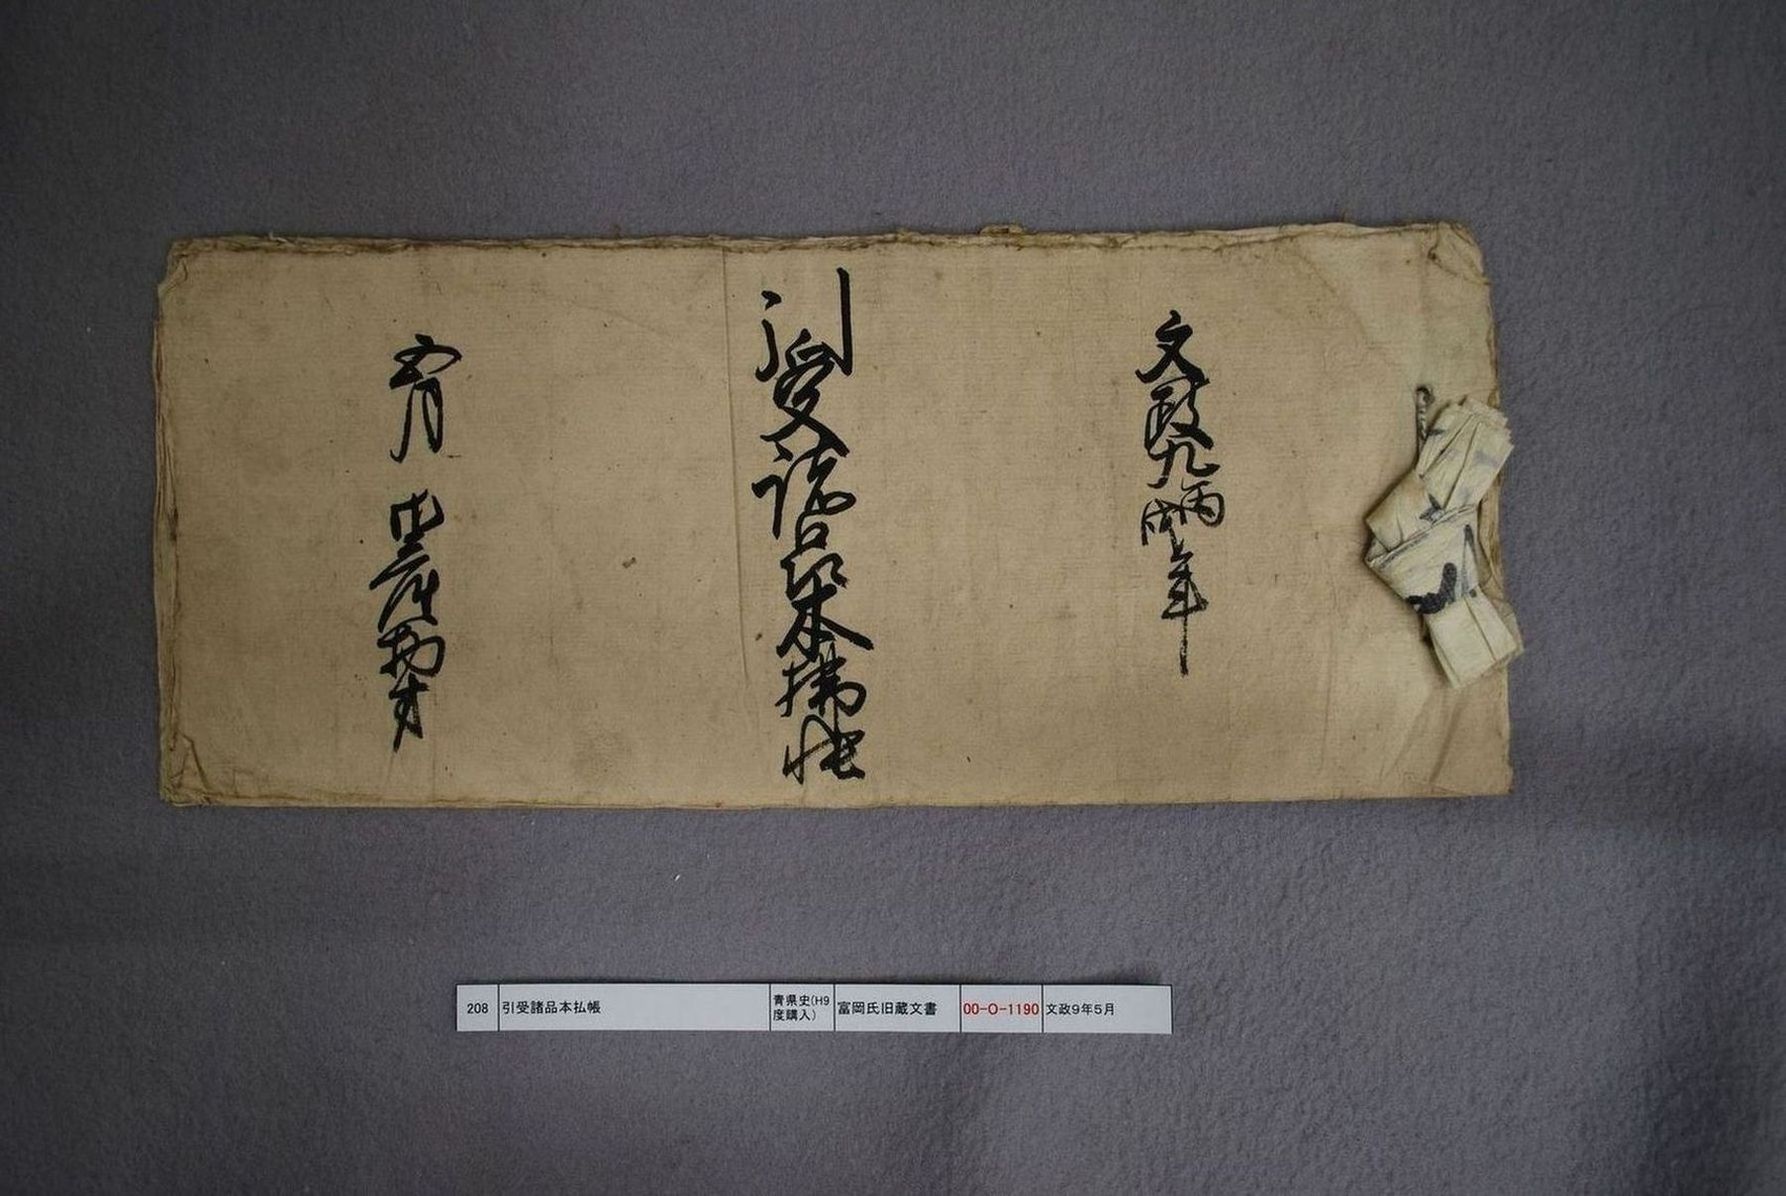 文政九丙戌年
引受諸品本拂帳
五月
208 引受諸品本払帳 青県史(H9度購入) 富岡氏旧蔵文書 00-O-1190 文政9年5月